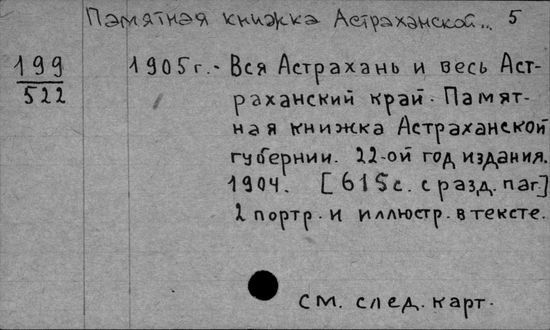 Памятная книжка Астраханской... 5
199
522
1905г. - Вся Астрахань и весь Аст-
раханский край. Памят-
ная книжка Астраханской
губернии. 22-ой год издания.
1904. [615с. с разд. паг.]
2 портр. и иллюстр. в тексте.
см. след. карт.